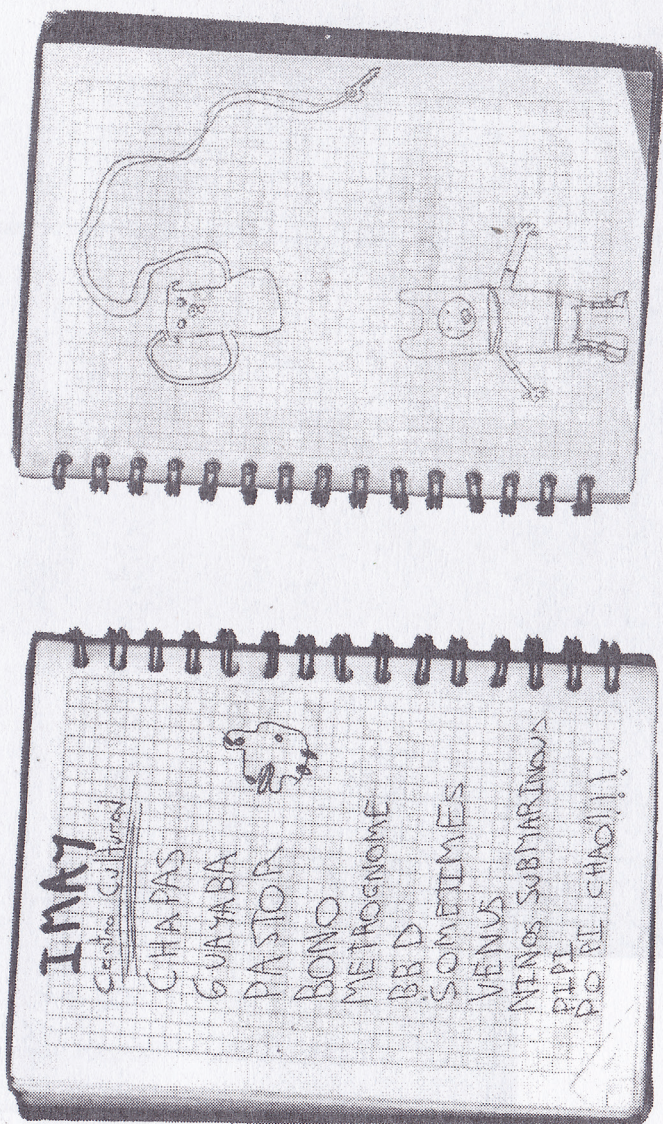 IMAY
Centro Cultural
CHAPAS
GUAYABA
PASTOR
BONO
METROGNOME
BBD
SOMETIMES
VENUS
NIÑOS SUBMARINOS
PIPI
PO PI CHAO!!!.